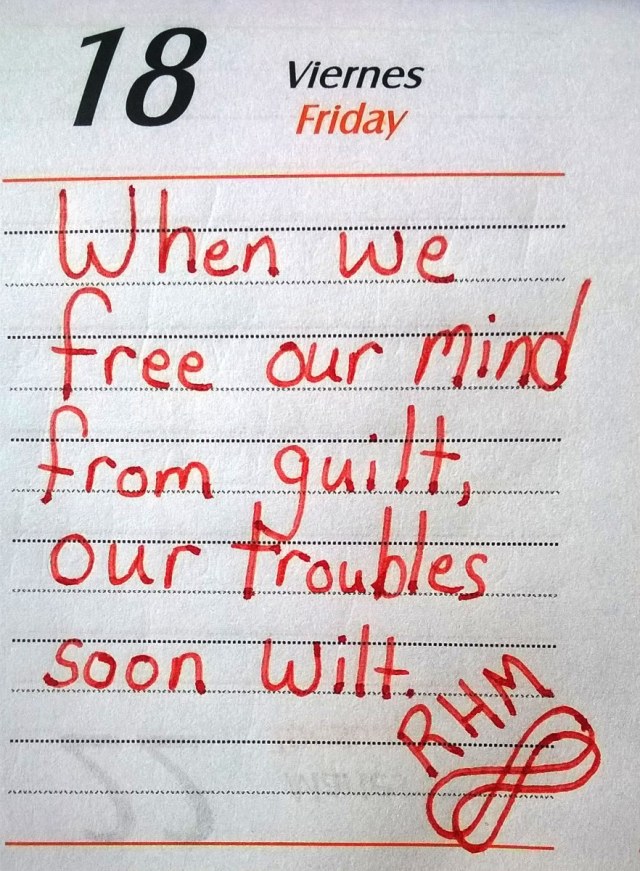 18 Viernes
Friday
When we
free our mind
from guilt,
our troubles
soon wilt.
RHM